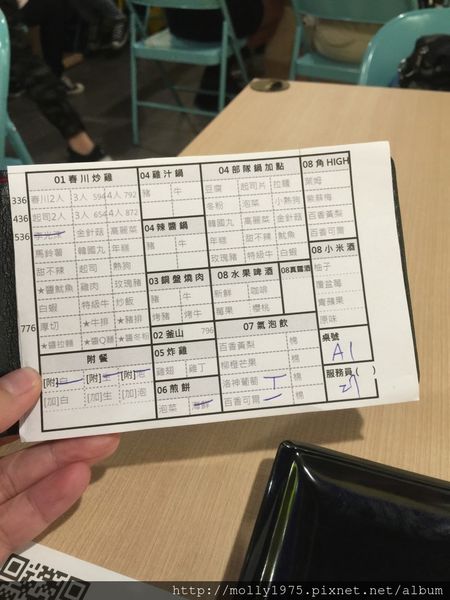 01 春川炒雞
336 春川2人 3人 594 4人 792
436 起司2人 3人 654 4人 872
536 金針菇 魷魚
馬鈴薯 韓國丸 年糕
甜不辣 起司 熱狗
★鹽魷魚 雞肉 玫瑰豬
白蝦 特級牛 炒飯
776 厚切 ★牛排 ★豬排
★鹽拉麵 ★鹽Q麵 ★鹽冬粉
附餐
[附]白 [附]生 [附]泡
[加]白 [加]生 [加]泡
04 雞汁鍋
豬 牛
04 辣醬鍋
豬 牛
03 銅盤燒肉
豬 牛
烤豬 烤牛
02 釜山 796
05 炸雞
雞翅 雞丁
06 煎餅
泡菜 海鮮
04 部隊鍋加點
豆腐 起司片 拉麵
冬粉 泡菜 小熱狗
韓國丸 高麗菜 魷魚
年糕 甜不辣 金針菇
玫瑰豬 特級牛 白蝦
08 水果啤酒
新鮮 咖啡
莓果 櫻桃
08真露酒
07 氣泡飲
百香黃梨 檸
柳橙芒果 檸
洛神葡萄 檸
百香可爾 檸
08 角HIGH
萊姆
紫蘇梅
百香黃梨
百香可爾
08 小米酒
柚子
覆盆莓
青蘋果
原味
桌號
A1
服務員( )
http://molly1975.pixnet.net/album